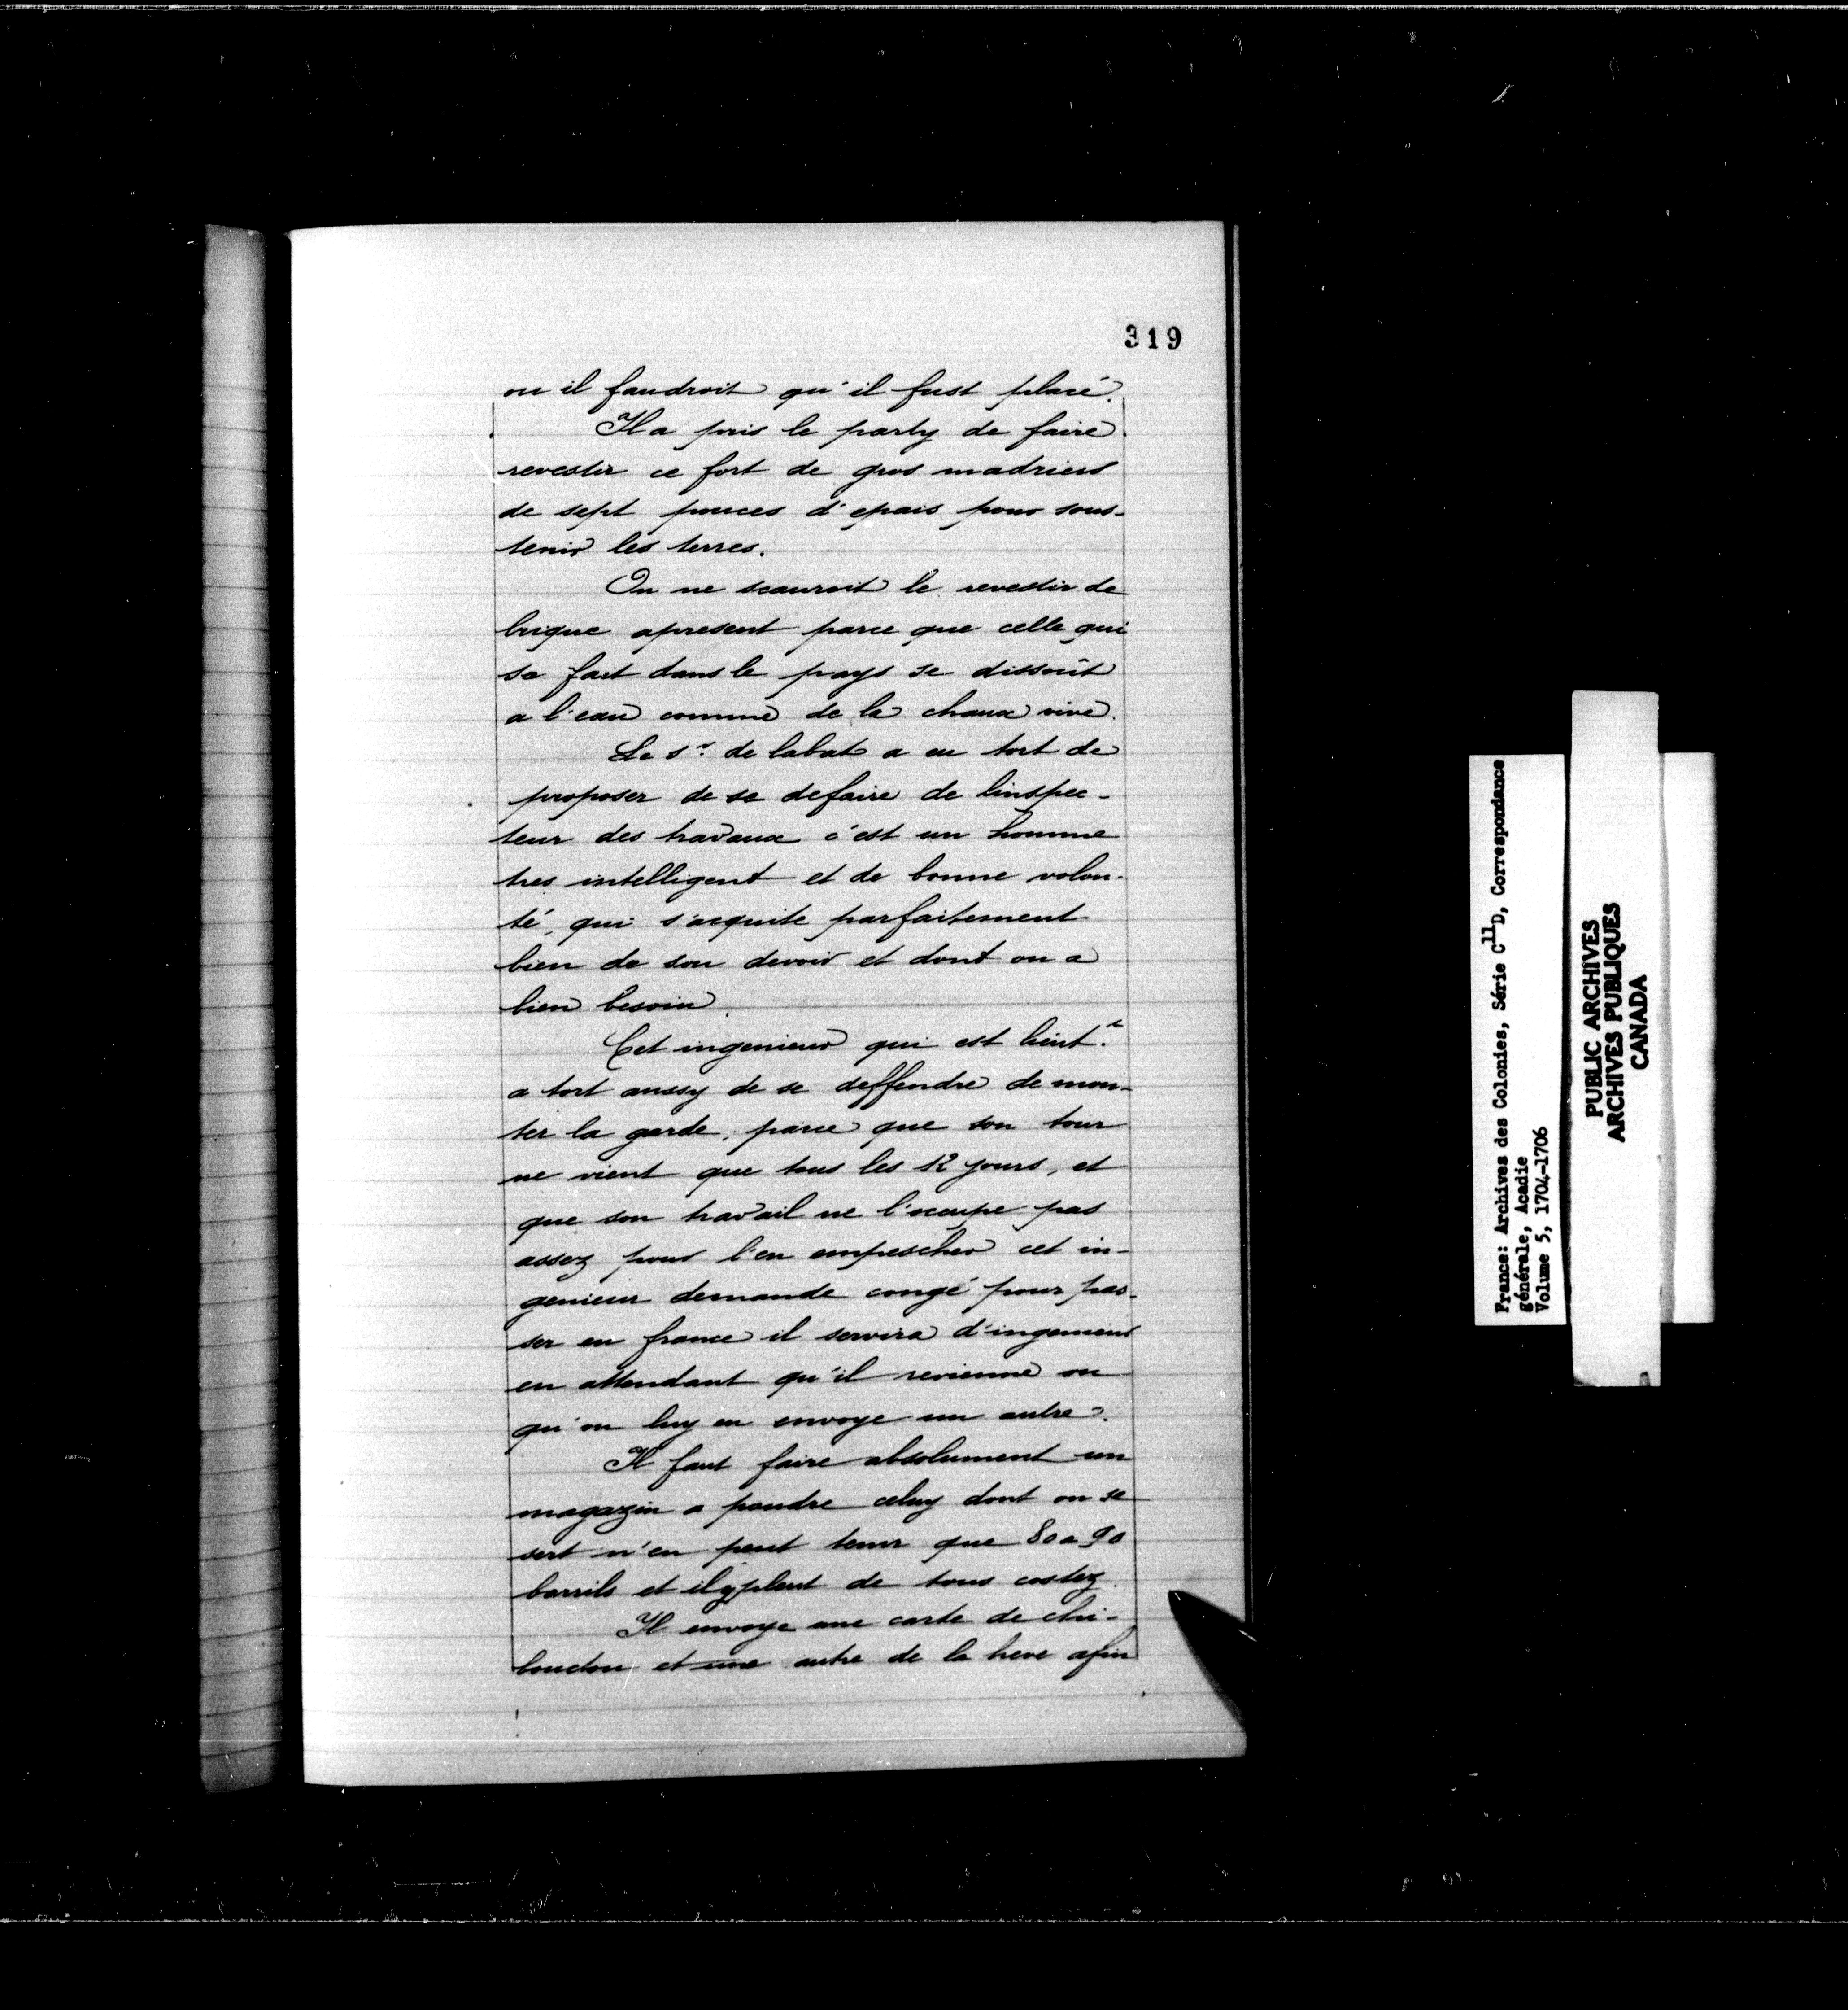 319
ou il faudroit qu'il fust placé.
Il a pris le party de faire
revestir ce fort de gros madriers
de sept pouces d'epais pour sous-
tenir les terres.
On ne scauroit le revestir de
brique apresent parce que celle qui
se fait dans le pays se dissoût
a l'eau comme de la chaux vive.
Le sr. de labat a eu tort de
proposer de se defaire de linspec-
teur des travaux c'est un homme
tres intelligent et de bonne volon-
té, qui s'acquite parfaitement
bien de son devoir et dont on a
bien besoin.
Cet ingenieur qui est lieut.t
a tort aussy de se deffendre de mon-
ter la garde, parce que son tour
ne vient que tous les 12 jours, et
que son travail ne l'ocupe pas
assez pour l'en empescher cet in-
genieur demande congé pour pas-
ser en france il servira d'ingenieur
en attendant qu'il revienne ou
qu'on luy en envoye un autre.
Il faut faire absolument un
magazin a poudre celuy dont on se
sert n'en peut tenir que 80 a 90
barrils et il y pleut de tous costez.
Il envoye une carte de chi-
bouctou et une autre de la heve afin
France: Archives des Colonies, Série C11D, Correspondance
générale, Acadie
Volume 5, 1704-1706
PUBLIC ARCHIVES
ARCHIVES PUBLIQUES
CANADA